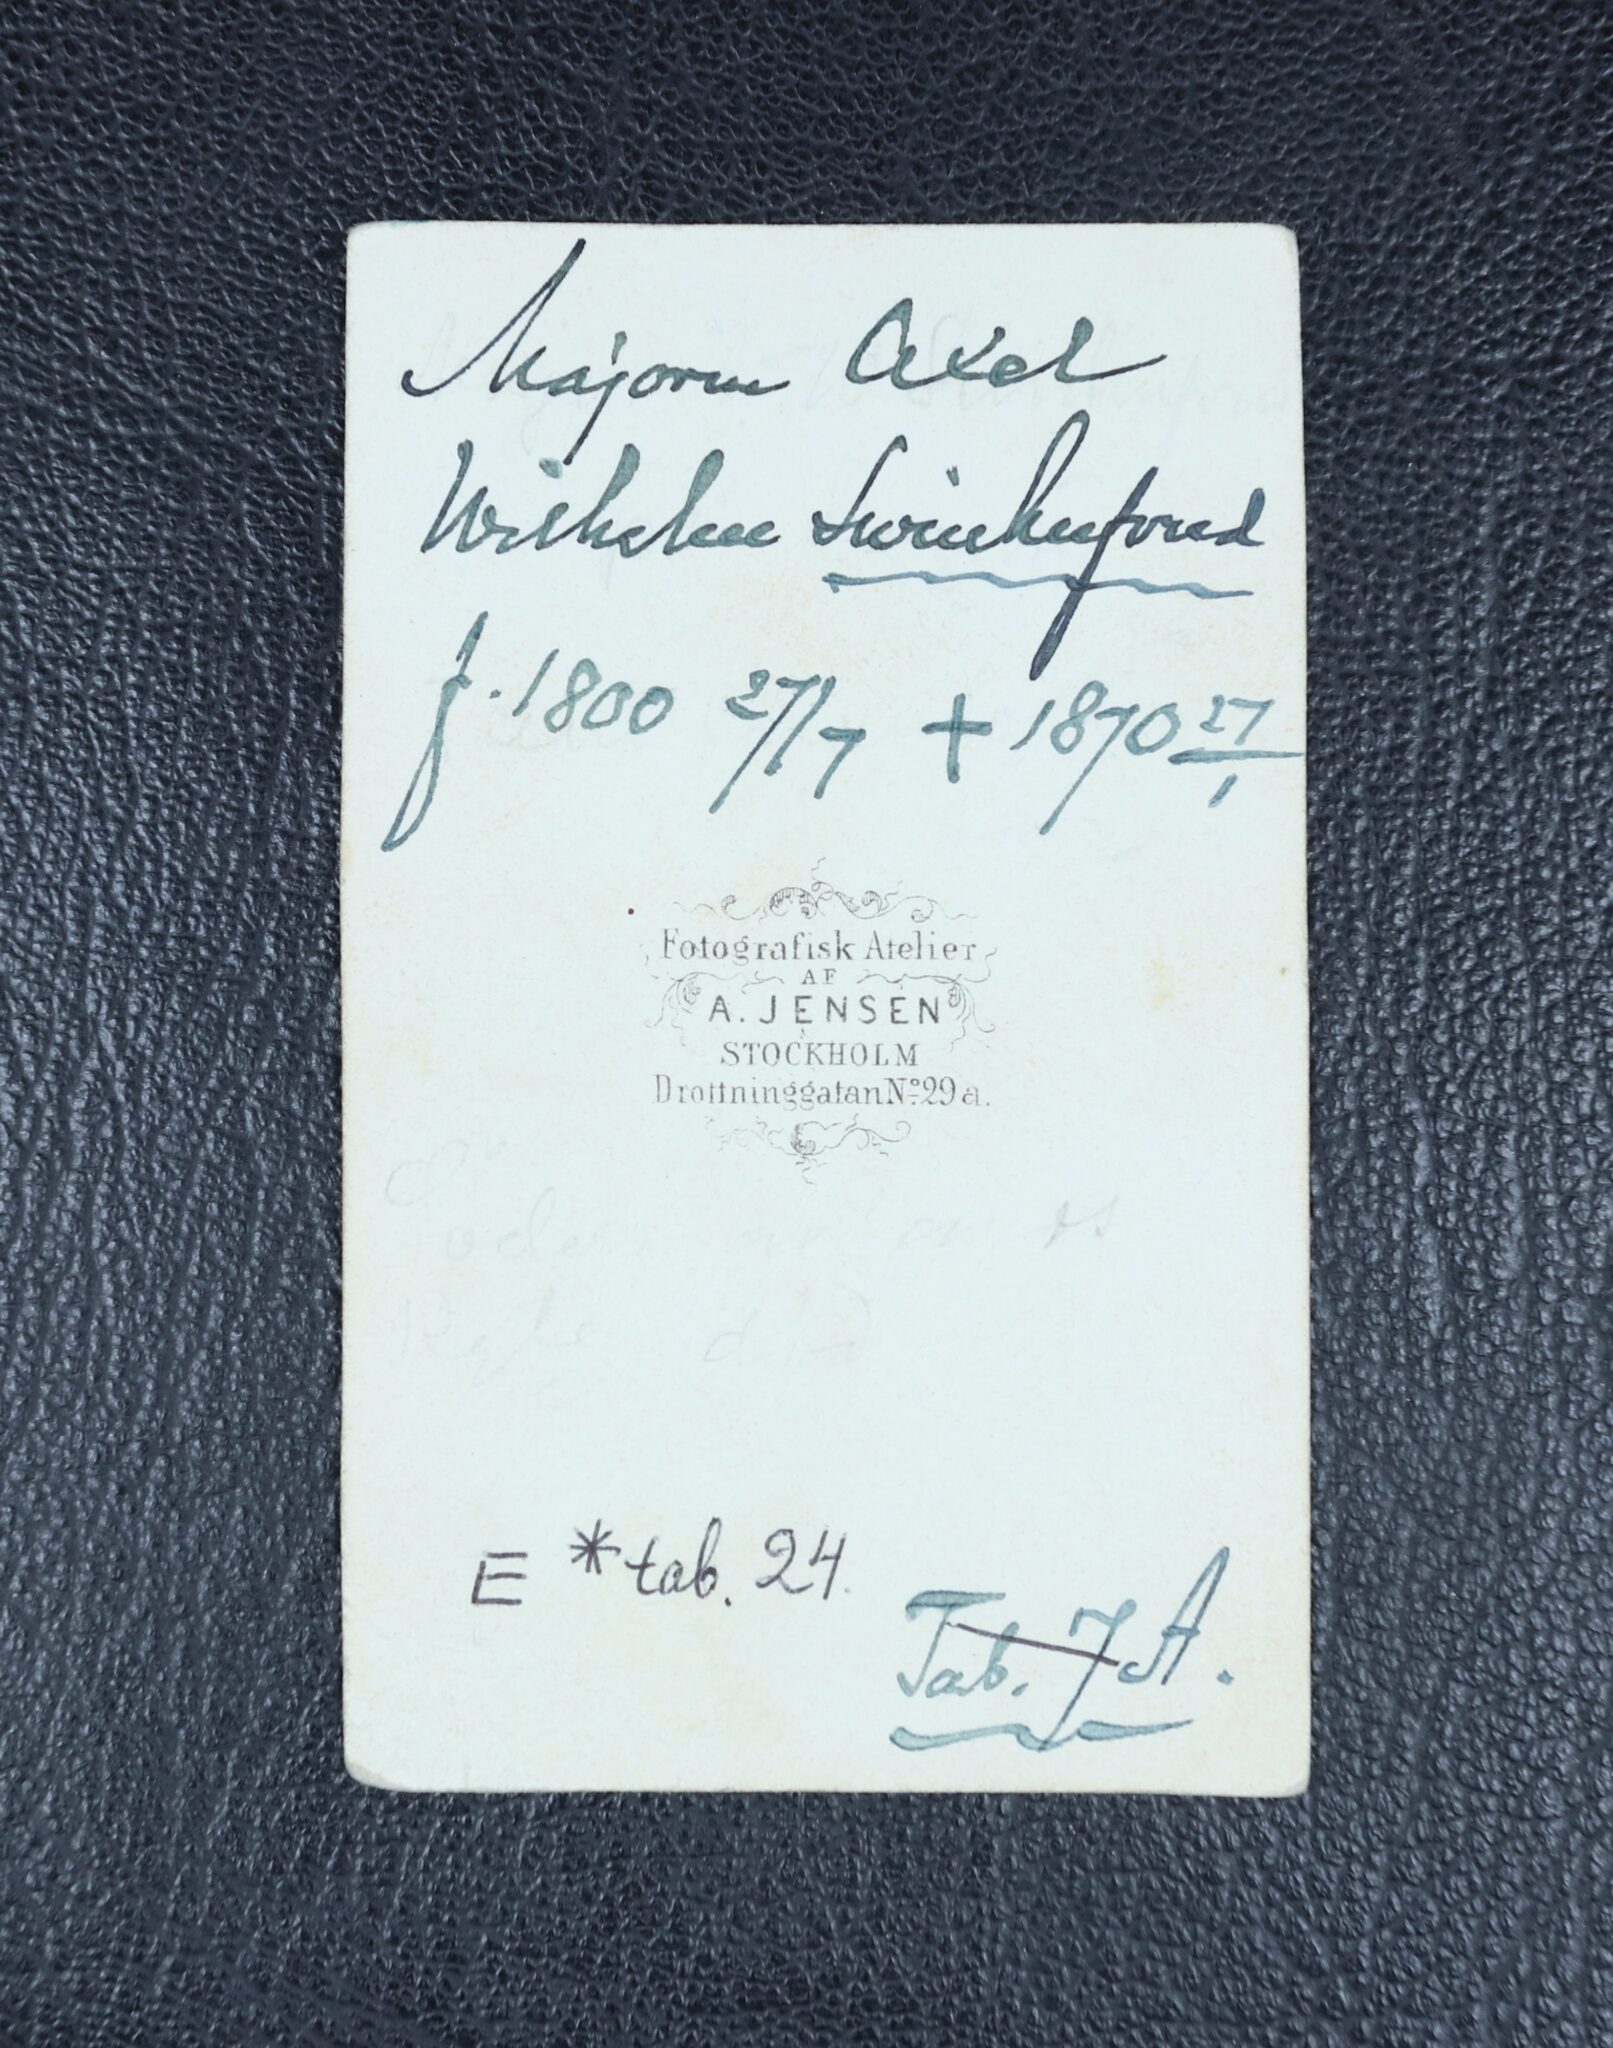 Majoren Axel
Wilhelm Swinhufvud
f. 1800 27/7 + 1870 27/1
Fotografisk Atelier
AF
A. JENSEN
STOCKHOLM
Drottninggatan No. 29 a.
E * tab. 24.
Tab. 7 A.